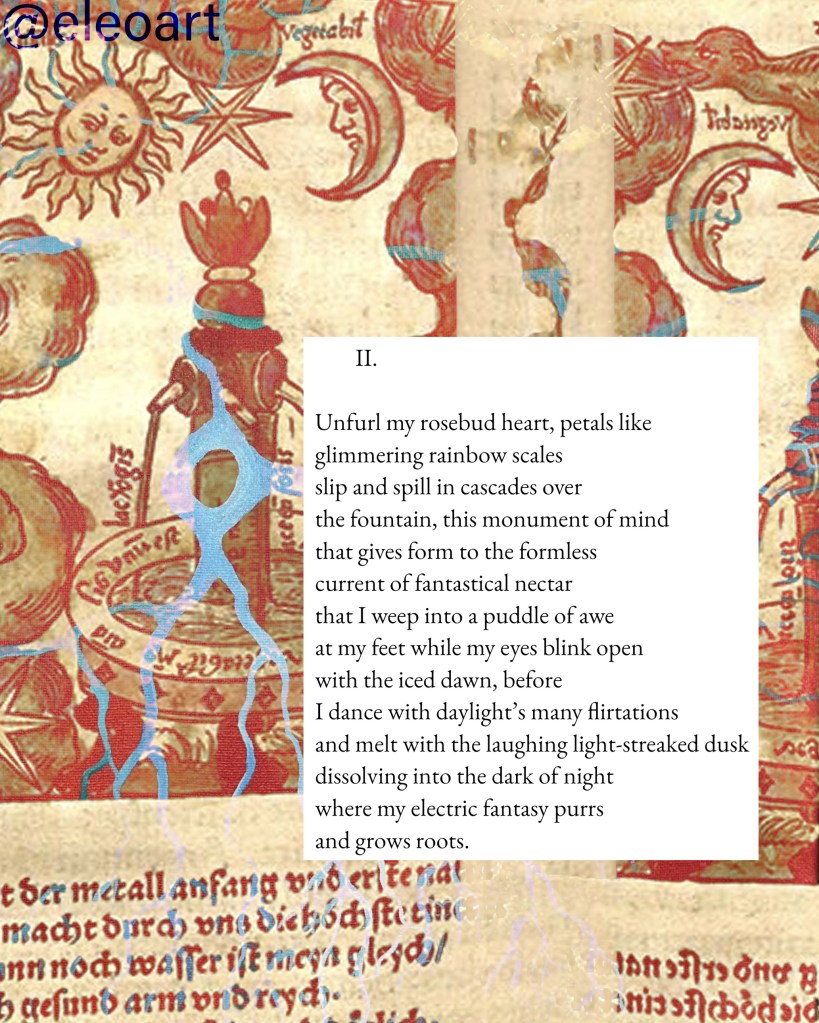 @eleoart
vegetabit
II.
Unfurl my rosebud heart, petals like
glimmering rainbow scales
slip and spill in cascades over
the fountain, this monument of mind
that gives form to the formless
current of fantastical nectar
that I weep into a puddle of awe
at my feet while my eyes blink open
with the iced dawn, before
I dance with daylight’s many flirtations
and melt with the laughing light-streaked dusk
dissolving into the dark of night
where my electric fantasy purrs
and grows roots.
t der metall anfang vnd erste nat
macht durch vns die höchste tinc
nn noch wasser ist meyn gleych/
gesund arm vnd reych.